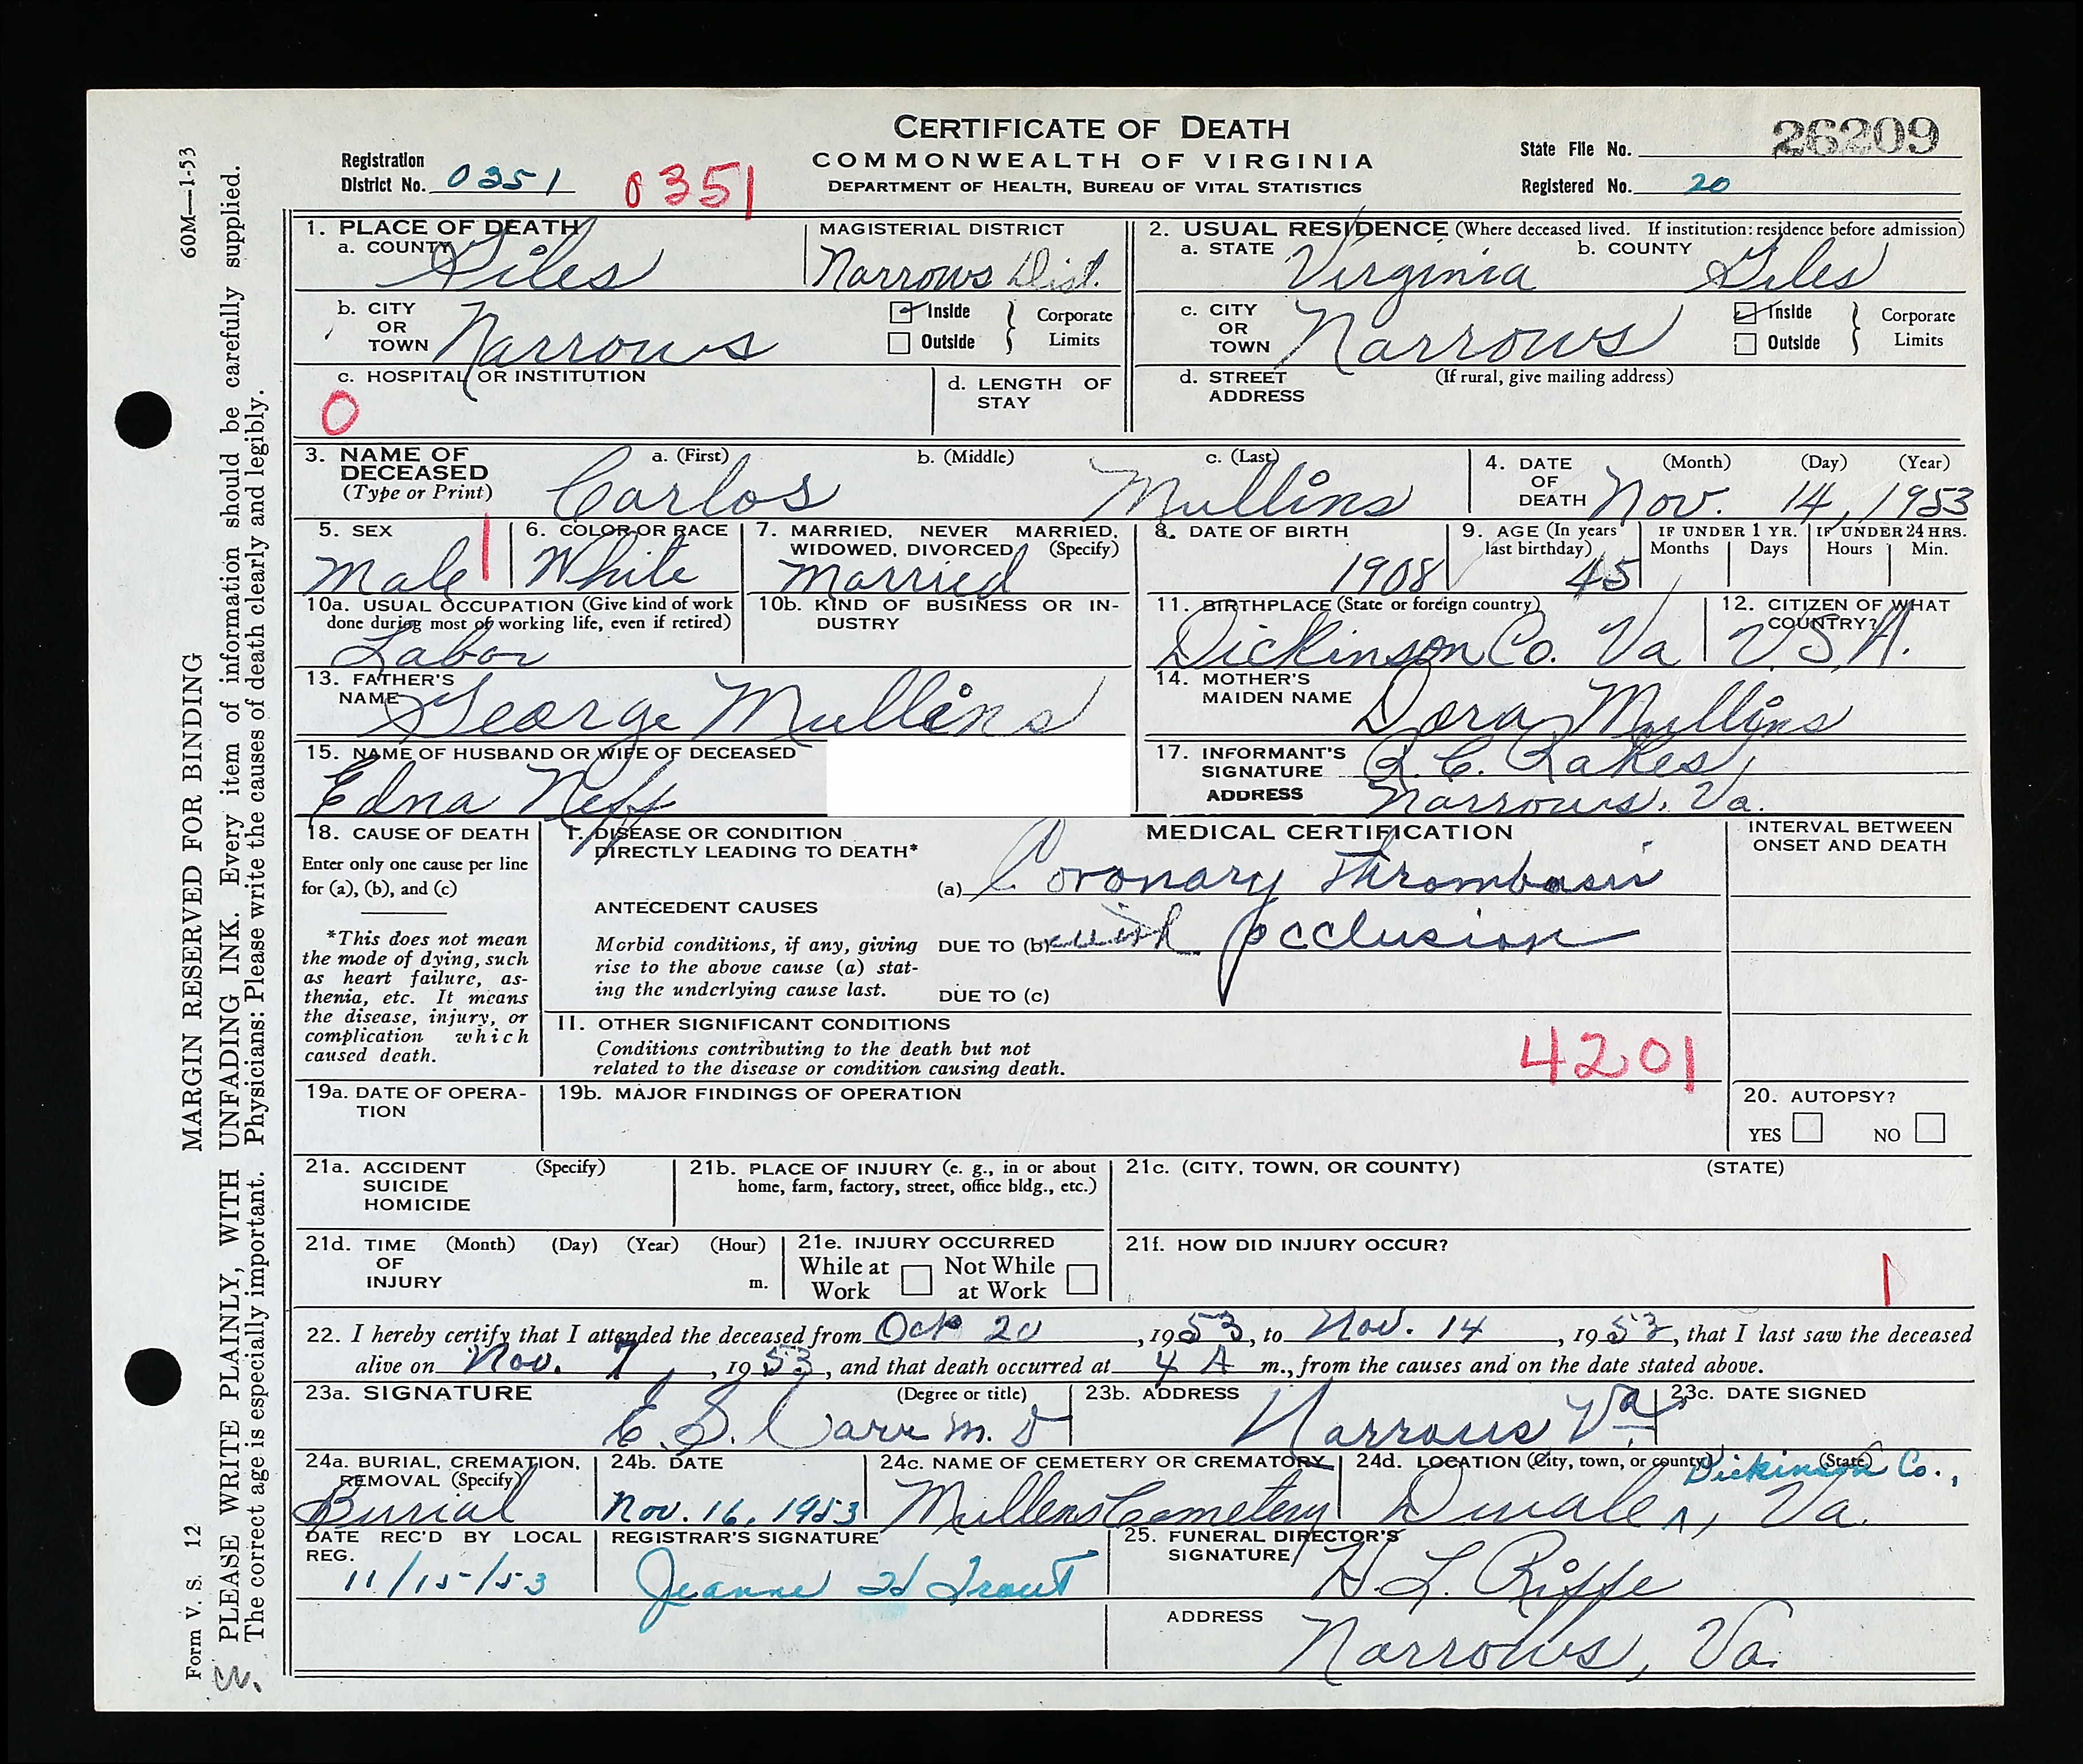 CERTIFICATE OF DEATH
COMMONWEALTH OF VIRGINIA
DEPARTMENT OF HEALTH, BUREAU OF VITAL STATISTICS
Registration District No. 0351 0351
State File No. 26209
Registered No. 20
60M—1-53
MARGIN RESERVED FOR BINDING
PLEASE WRITE PLAINLY, WITH UNFADING INK. Every item of information should be carefully supplied.
The correct age is especially important. Physicians: Please write the causes of death clearly and legibly.
Form V. S. 12
1. PLACE OF DEATH
a. COUNTY Giles
MAGISTERIAL DISTRICT Narrows Dist.
2. USUAL RESIDENCE (Where deceased lived. If institution: residence before admission)
a. STATE Virginia b. COUNTY Giles
b. CITY OR TOWN Narrows Inside Outside } Corporate Limits
c. CITY OR TOWN Narrows Inside Outside } Corporate Limits
c. HOSPITAL OR INSTITUTION
0
d. LENGTH OF STAY
d. STREET ADDRESS (If rural, give mailing address)
3. NAME OF DECEASED (Type or Print) a. (First) b. (Middle) c. (Last)
Carlos Mullins
4. DATE OF DEATH (Month) (Day) (Year)
Nov. 14, 1953
5. SEX Male 1
6. COLOR OR RACE White
7. MARRIED, NEVER MARRIED, WIDOWED, DIVORCED (Specify) Married
8. DATE OF BIRTH 1908
9. AGE (In years last birthday) 45
IF UNDER 1 YR. Months Days
IF UNDER 24 HRS. Hours Min.
10a. USUAL OCCUPATION (Give kind of work done during most of working life, even if retired)
Labor
10b. KIND OF BUSINESS OR INDUSTRY
11. BIRTHPLACE (State or foreign country)
Dickinson Co. Va
12. CITIZEN OF WHAT COUNTRY? U.S.A.
13. FATHER'S NAME George Mullins
14. MOTHER'S MAIDEN NAME Dora Mullins
15. NAME OF HUSBAND OR WIFE OF DECEASED
Edna Neff
17. INFORMANT'S SIGNATURE R. C. Rakes
ADDRESS Narrows, Va.
18. CAUSE OF DEATH
Enter only one cause per line for (a), (b), and (c)
*This does not mean the mode of dying, such as heart failure, asthenia, etc. It means the disease, injury, or complication which caused death.
MEDICAL CERTIFICATION
INTERVAL BETWEEN ONSET AND DEATH
I. DISEASE OR CONDITION DIRECTLY LEADING TO DEATH*
(a) Coronary Thrombosis
ANTECEDENT CAUSES
Morbid conditions, if any, giving rise to the above cause (a) stating the underlying cause last.
DUE TO (b) with occlusion
DUE TO (c)
II. OTHER SIGNIFICANT CONDITIONS
Conditions contributing to the death but not related to the disease or condition causing death.
4201
19a. DATE OF OPERATION
19b. MAJOR FINDINGS OF OPERATION
20. AUTOPSY?
YES NO
21a. ACCIDENT SUICIDE HOMICIDE (Specify)
21b. PLACE OF INJURY (e. g., in or about home, farm, factory, street, office bldg., etc.)
21c. (CITY, TOWN, OR COUNTY) (STATE)
21d. TIME OF INJURY (Month) (Day) (Year) (Hour) m.
21e. INJURY OCCURRED
While at Work Not While at Work
21f. HOW DID INJURY OCCUR?
1
22. I hereby certify that I attended the deceased from Oct 20, 1953, to Nov. 14, 1953, that I last saw the deceased
alive on Nov. 7, 1953, and that death occurred at 4 A m., from the causes and on the date stated above.
23a. SIGNATURE (Degree or title)
E. S. Carr M. D
23b. ADDRESS
Narrows Va.
23c. DATE SIGNED
24a. BURIAL, CREMATION, REMOVAL (Specify)
Burial
24b. DATE
Nov. 16, 1953
24c. NAME OF CEMETERY OR CREMATORY
Mullens Cemetery
24d. LOCATION (City, town, or county) (State)
Dickinson Co.,
Dwale, Va.
DATE REC'D BY LOCAL REG.
11/15/53
REGISTRAR'S SIGNATURE
Jeanne H Trout
25. FUNERAL DIRECTOR'S SIGNATURE
H. L. Riffe
ADDRESS
Narrows, Va.